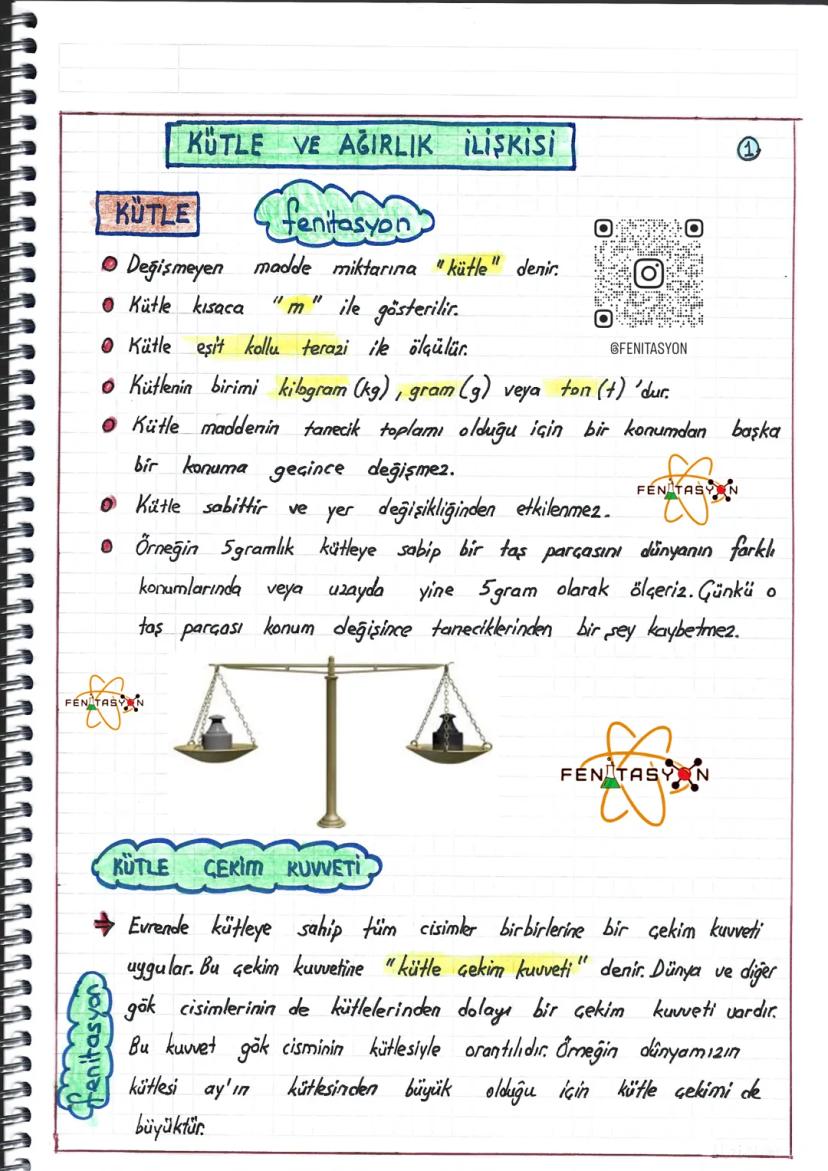 KÜTLE VE AĞIRLIK İLİŞKİSİ
1
KÜTLE
fenitasyon
Değişmeyen madde miktarına "kütle" denir.
Kütle kısaca "m" ile gösterilir.
Kütle eşit kollu terazi ile ölçülür.
@FENITASYON
Kütlenin birimi kilogram (kg), gram (g) veya ton (t) 'dur.
Kütle maddenin tanecik toplamı olduğu için bir konumdan başka
bir konuma geçince değişmez.
FENİTASYON
Kütle sabittir ve yer değişikliğinden etkilenmez.
Örneğin 5gramlık kütleye sahip bir taş parçasını dünyanın farklı
konumlarında veya uzayda yine 5gram olarak ölçeriz. Çünkü o
taş parçası konum değişince taneciklerinden bir şey kaybetmez.
FENİTASYON
FENİTASYON
KÜTLE ÇEKİM KUVVETİ
Evrende kütleye sahip tüm cisimler birbirlerine bir çekim kuvveti
uygular. Bu çekim kuvvetine "kütle çekim kuvveti" denir. Dünya ve diğer
gök cisimlerinin de kütlelerinden dolayı bir çekim kuvveti vardır.
Bu kuvvet gök cisminin kütlesiyle orantılıdır. Örneğin dünyamızın
kütlesi ay'ın kütlesinden büyük olduğu için kütle çekimi de
büyüktür.
fenitasyon